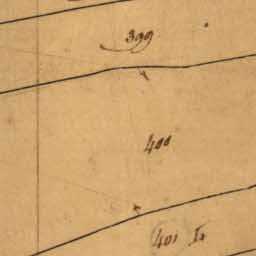 399
400
401